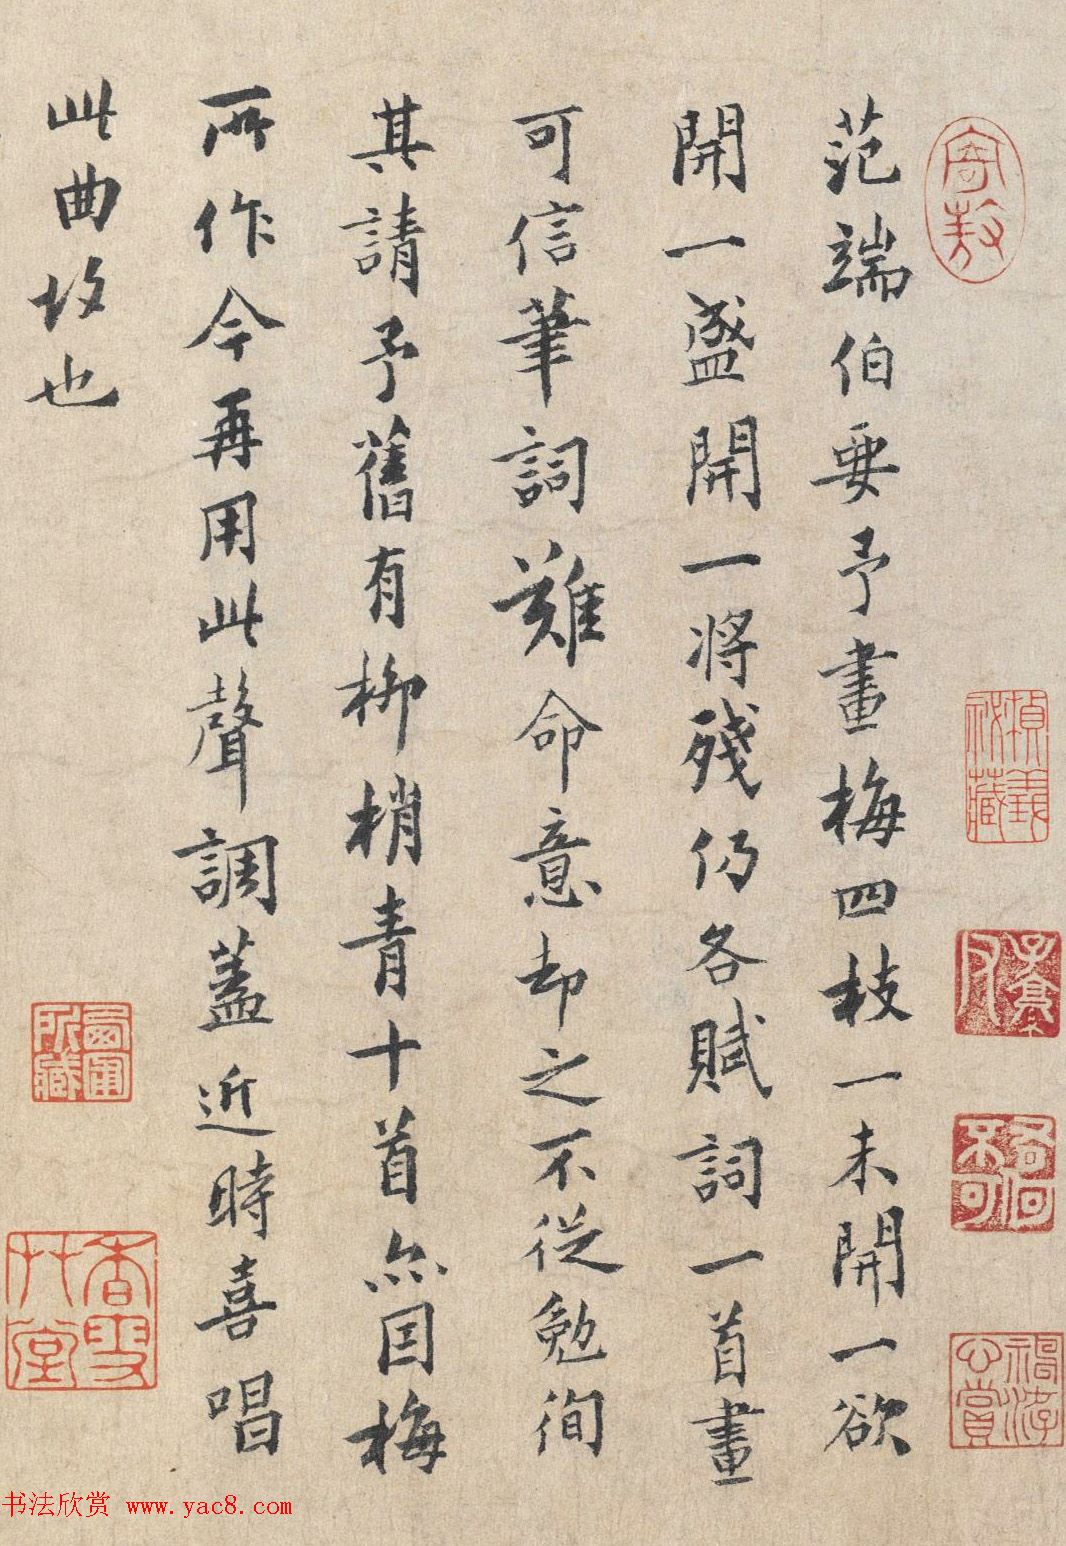 范端伯要予畫梅四枝一未開一欲
開一盛開一將殘仍各賦詞一首畫
可信筆詞難命意却之不從勉徇
其請予舊有柳梢青十首亦因梅
所作今再用此聲調蓋近時喜唱
此曲故也
书法欣赏 www.yac8.com